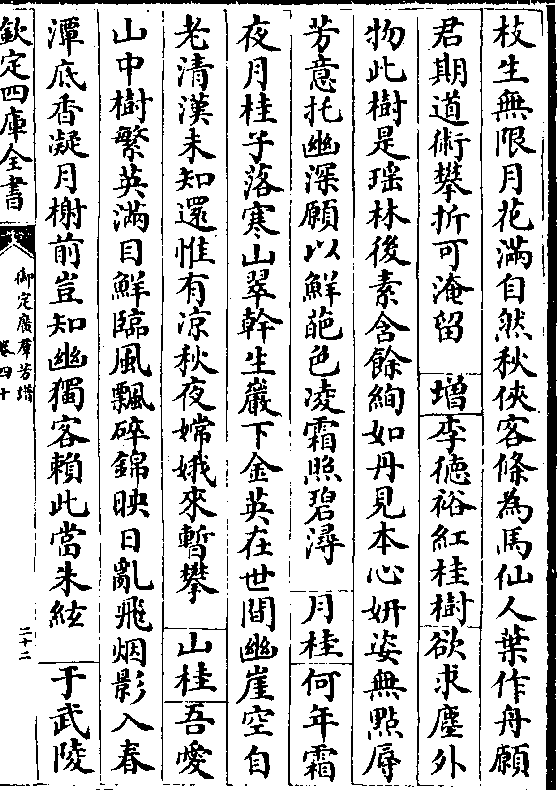 枝生無限月花滿自然秋俠客條為馬仙人葉作舟願
君期道術攀折可淹留 增 李德裕紅桂樹欲求塵外
物此樹是瑶林後素含餘絢如丹見本心妍姿無點辱
芳意托幽深願以鮮葩色凌霜照碧潯 月桂 何年霜
夜月桂子落寒山翠幹生巖下金英在世間幽崖空自
老清漢未知還惟有凉秋夜嫦娥來暫攀 山桂 吾愛
山中樹繁英滿目鮮臨風飄碎錦映日亂飛烟影入春
潭底香凝月榭前豈知幽獨客賴此當朱絃 于武陵
欽定四庫全書
御定廣羣芳譜
卷四十
二十二